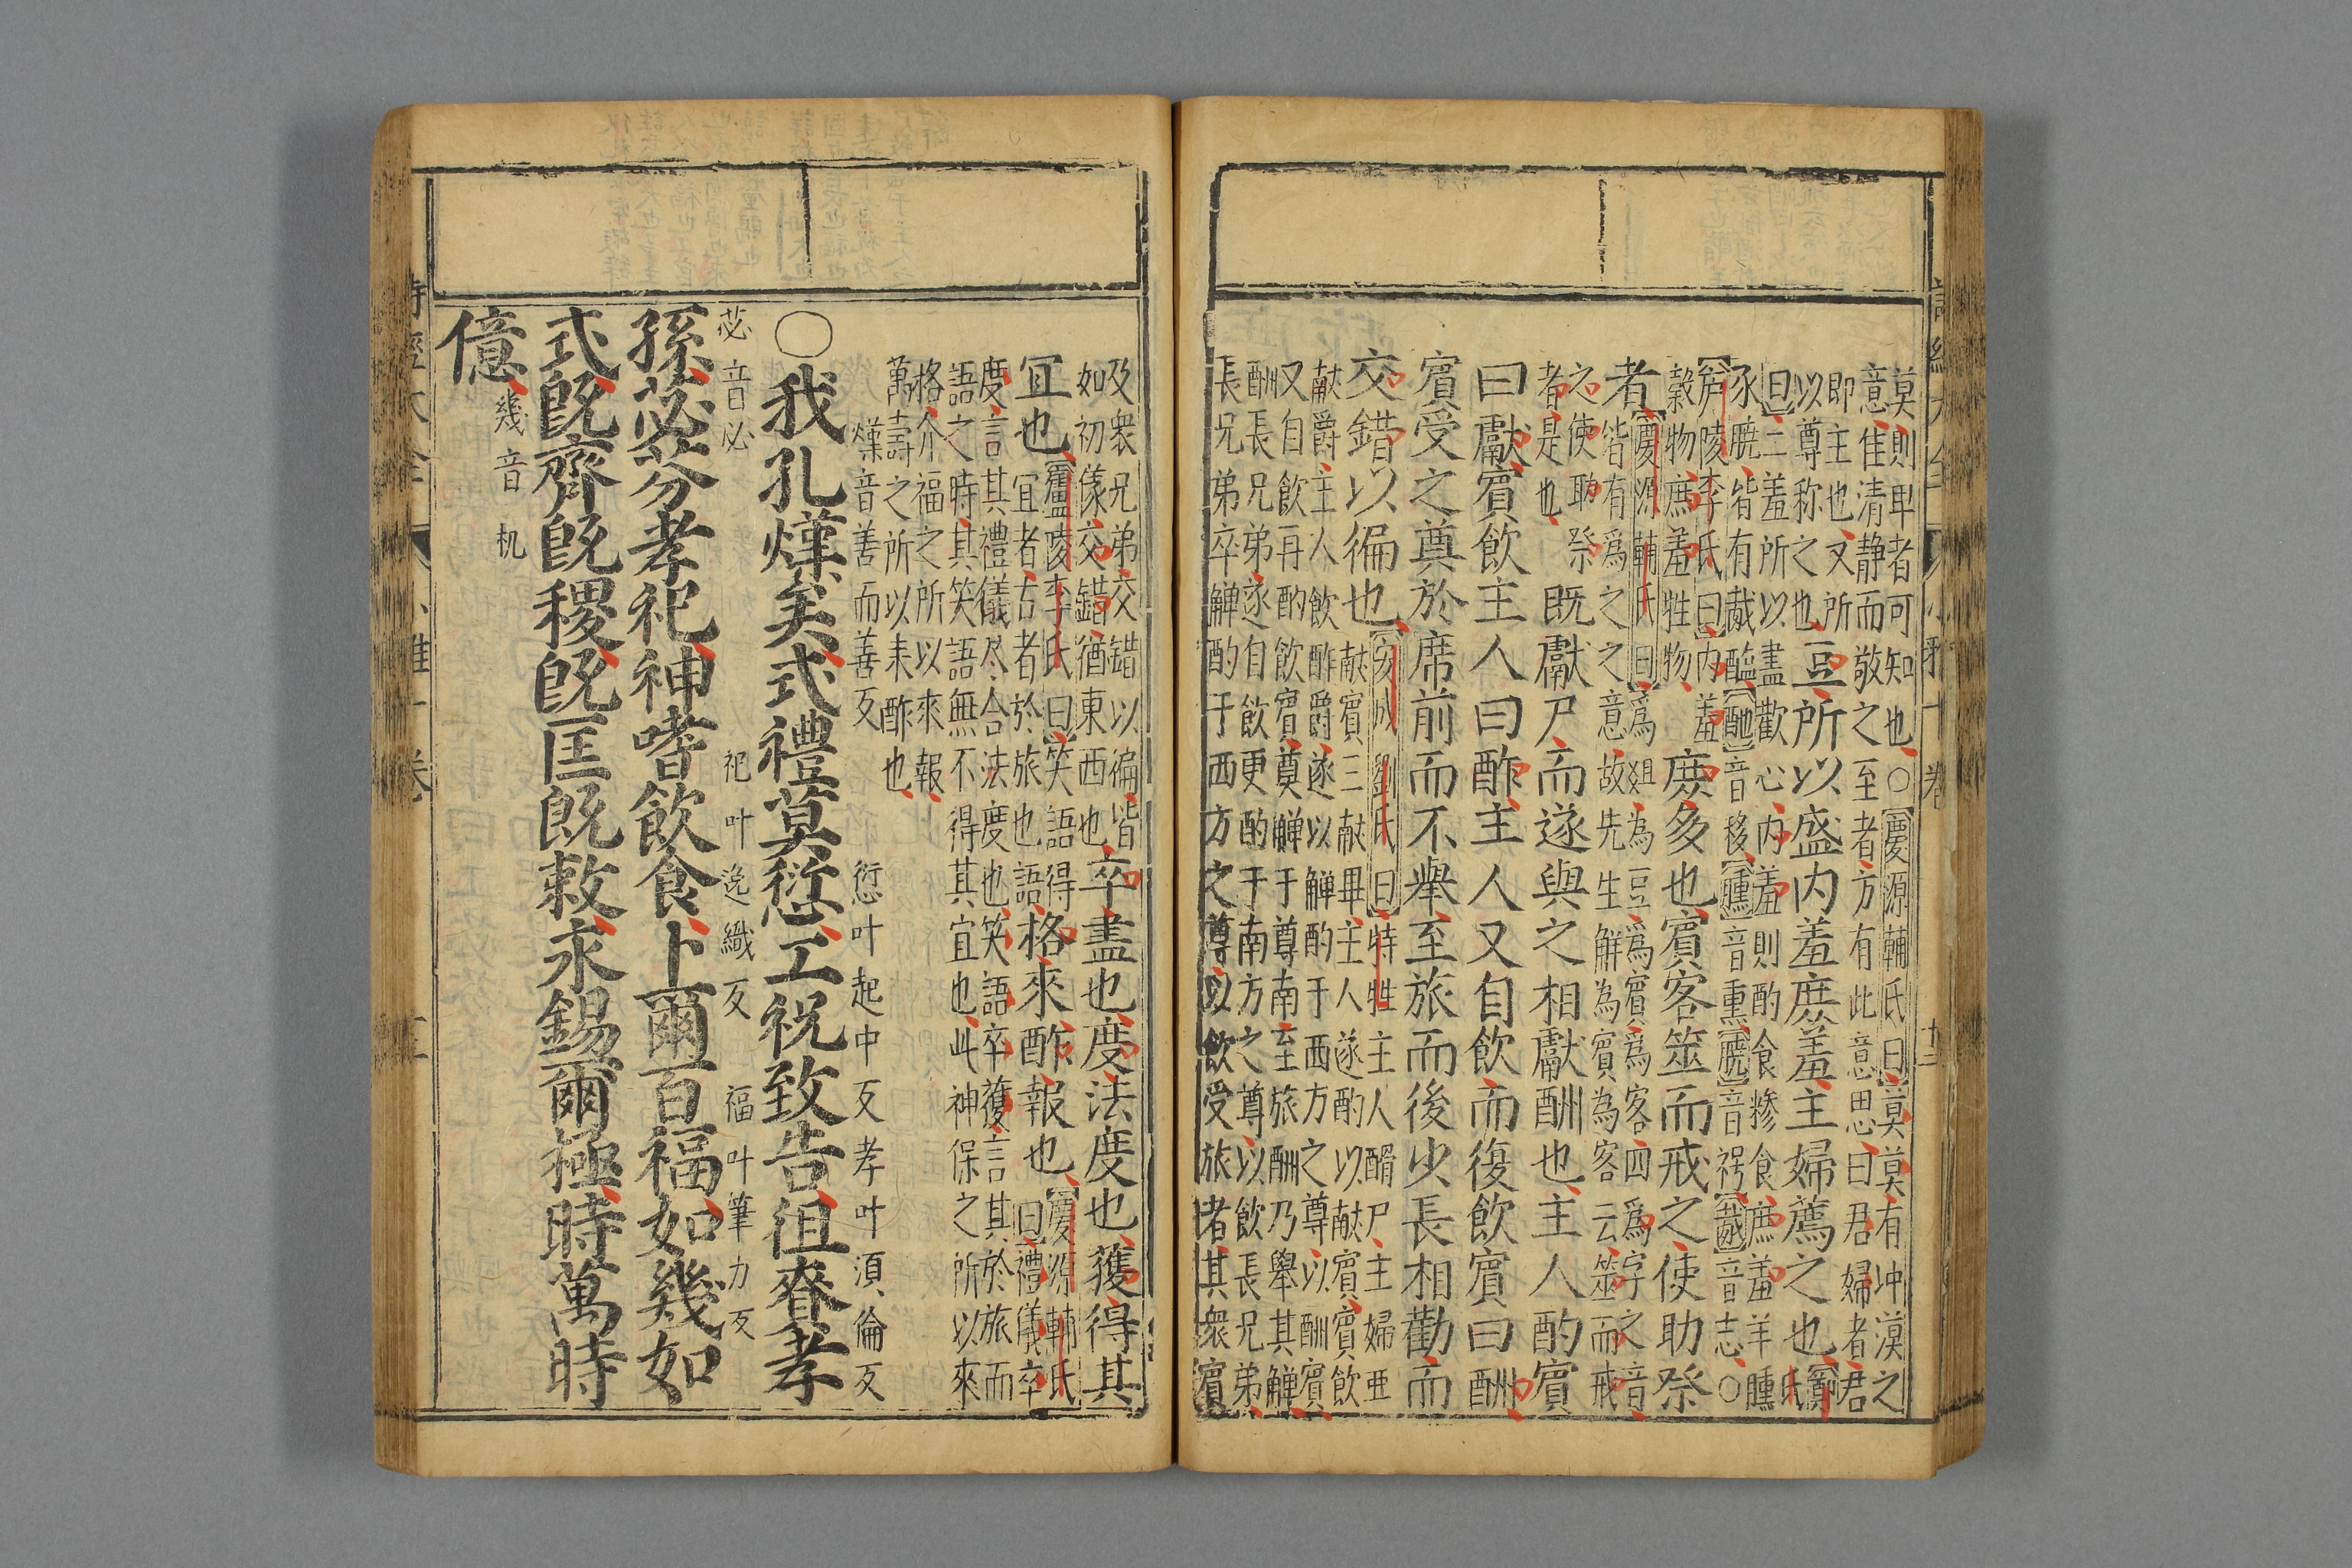 莫則卑者可知也○慶源輔氏曰莫莫有冲漠之
意佳清静而敬之至者方有此意思曰君婦者君
即主也又所
以尊称之也
豆所以盛内羞庶羞主婦薦之也鄭氏
曰二羞所以盡歡心内羞則酌食糝食庶羞羊臐
豕膮皆有胾醢酏音移臐音熏膮音枵胾音志○
廬陵李氏曰内羞
穀物庶羞牲物
庶多也賓客筮而戒之使助祭
者
慶源輔氏曰爲俎為豆爲賓爲客四爲字之音
皆有爲之之意故先生解為賓為客云筮而戒
之使助祭
者是也
既獻尸而遂與之相獻酬也主人酌賓
曰獻賓飲主人曰酢主人又自飲而復飲賓曰酬
賓受之奠於席前而不舉至旅而後少長相勸而
交錯以徧也
安成劉氏曰特牲主人酳尸主婦亞
献賓三献畢主人遂酌以献賓賓飲
献爵主人飲酢爵遂以觶酌于西方之尊以酬賓
又自飲再酌飲賓奠觶于尊南至旅酬乃舉其觶
酬長兄弟遂自飲更酌于南方之尊以飲長兄弟
長兄弟卒觶酌于西方之尊以飲受旅者其衆賓
及衆兄弟交錯以徧皆
如初儀交錯猶東西也
卒盡也度法度也獲得其
宜也
廬陵李氏曰笑語得
宜者古者於旅也語
格來酢報也
慶源輔氏
曰禮儀卒
度言其禮儀尽合法度也笑語卒獲言其於旅而
語之時其笑語無不得其宜也此神保之所以來
格介福之所以來報
萬壽之所以来酢也
熯音善而善反 愆叶起中反孝叶須倫反
○我孔熯矣式禮莫愆工祝致告徂賚孝
苾音必 祀叶逸織反 福叶筆力反
孫苾芬孝祀神嗜飲食卜爾百福如幾如
式既齊既稷既匡既敕永錫爾極時萬時
億幾音机